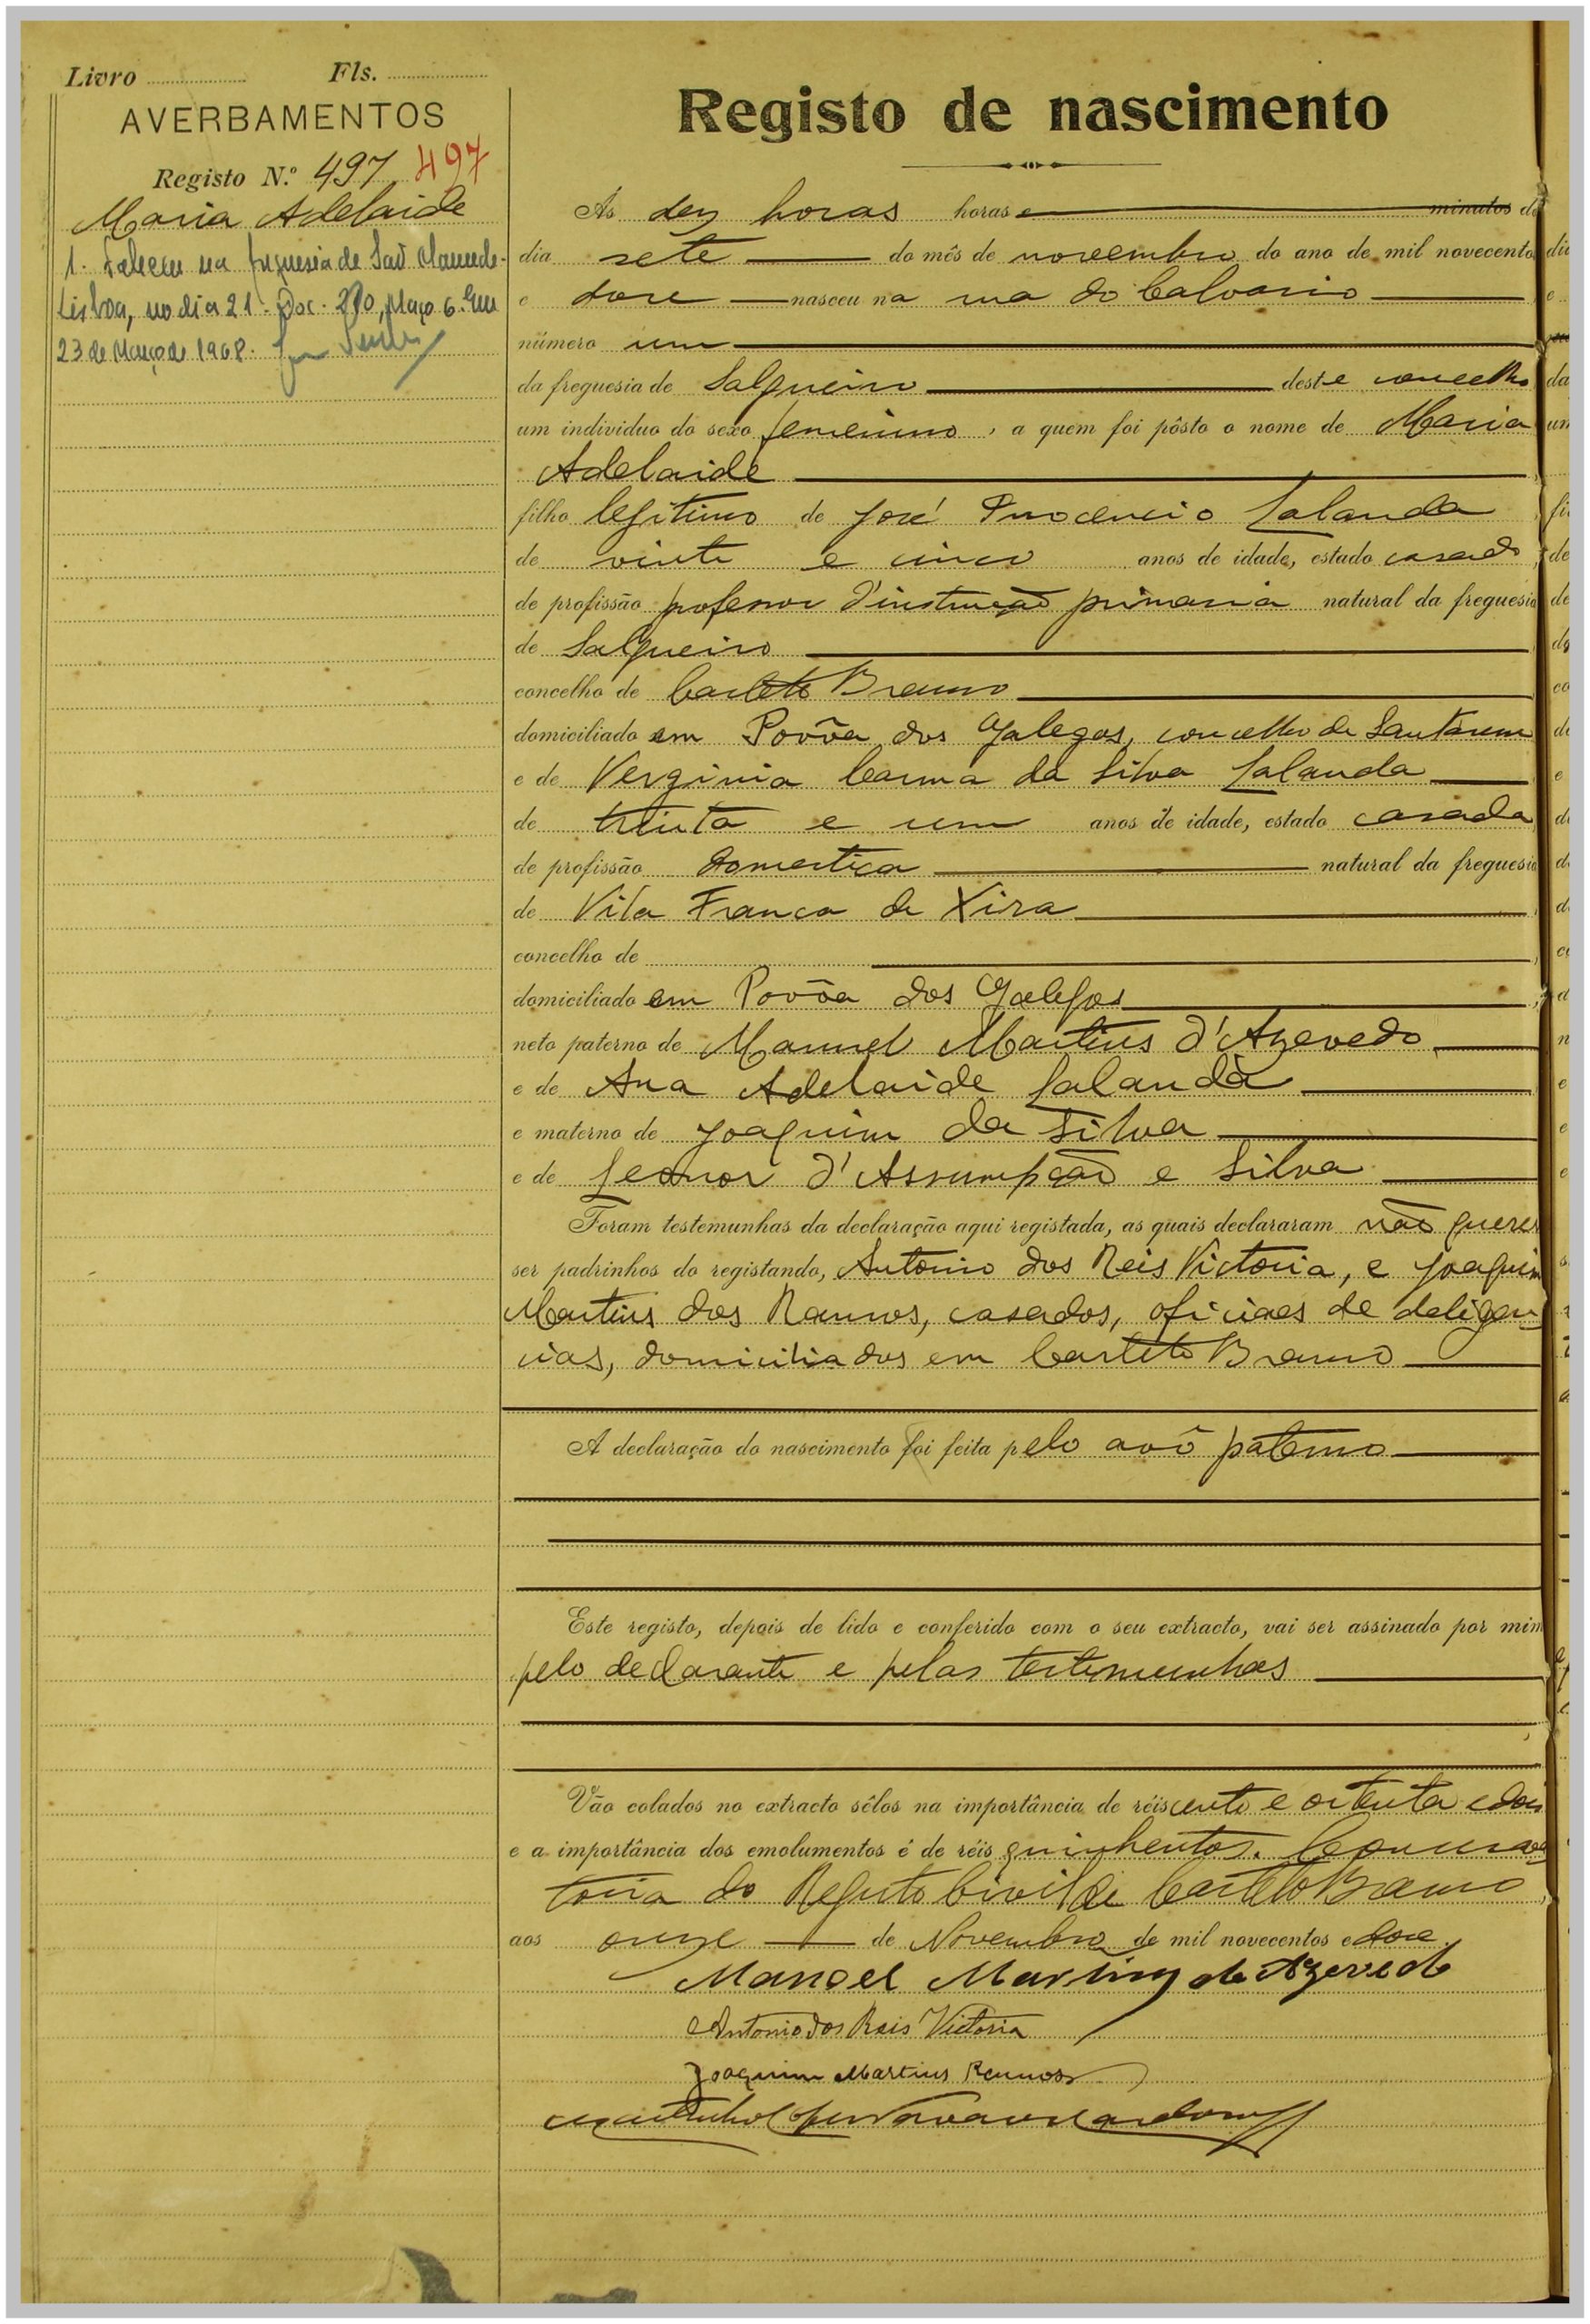 Livro Fls.
AVERBAMENTOS
Registo N.º 497 497
Maria Adelaide
1. Faleceu na freguesia de São Mamede-
Lisboa, no dia 21. Doc. 270, Maço 6. Em
23 de Março de 1968.
Registo de nascimento
Ás dez horas horas e minutos do
dia sete do mês de novembro do ano de mil novecentos
e doze nasceu na rua do Calvario
número um
da freguesia de Salgueiro deste concelho
um individuo do sexo femenino, a quem foi pôsto o nome de Maria
Adelaide
filho legitimo de José Inocencio Lalanda
de vinte e cinco anos de idade, estado casado
de profissão professor d'instrução primaria natural da freguesia
de Salgueiro
concelho de Castelo Branco
domiciliado em Povôa dos Galegos, concelho de Santarem
e de Verginia Carma da Silva Lalanda
de trinta e um anos de idade, estado casada
de profissão domestica natural da freguesia
de Vila Franca de Xira
concelho de
domiciliado em Povôa dos Galegos
neto paterno de Manuel Martins d'Azevedo
e de Ana Adelaide Lalanda
e materno de Joaquim da Silva
e de Leonor d'Assumpção e Silva
Foram testemunhas da declaração aqui registada, as quais declararam não querer
ser padrinhos do registando, Antonio dos Reis Victoria, e Joaquim
Martins dos Ramos, casados, oficiaes de deligen
cias, domiciliados em Castelo Branco
A declaração do nascimento foi feita pelo avô paterno
Este registo, depois de lido e conferido com o seu extracto, vai ser assinado por mim
pelo declarante e pelas testemunhas
Vão colados no extracto sêlos na importância de réis cento e oitenta e dois
e a importância dos emolumentos é de réis quinhentos. Conserva
toria do Registo Civil de Castelo Branco,
aos onze de Novembro de mil novecentos e doze.
Manoel Martins de Azevedo
Antonio dos Reis Victoria
Joaquim Martins Ramos